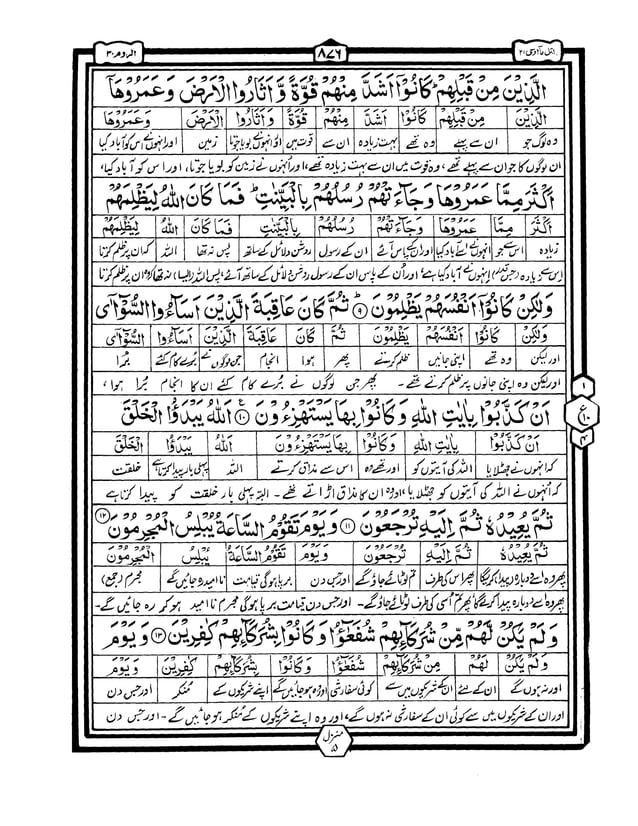 اتل ما اوحی ۲۱ ۸۷۶ الروم ۳۰
الَّذِیْنَ مِنْ قَبْلِهِمْ ؕ كَانُوْۤا اَشَدَّ مِنْهُمْ قُوَّةً وَّ اَثَارُوا الْاَرْضَ وَ عَمَرُوْهَاۤ
الَّذِیْنَ مِنْ قَبْلِهِمْ كَانُوْۤا اَشَدَّ مِنْهُمْ قُوَّةً وَّ اَثَارُوا الْاَرْضَ وَ عَمَرُوْهَاۤ
وہ لوگ جو ان سے پہلے وہ تھے بہت زیادہ ان سے قوت میں اور انہوں نے بویا جوتا زمین اور انہوں نے اس کو آباد کیا
ان لوگوں کا جو ان سے پہلے تھے، وہ قوت میں ان سے بہت زیادہ تھے، اور انہوں نے زمین کو بویا جوتا، اور اس کو آباد کیا،
اَكْثَرَ مِمَّا عَمَرُوْهَا وَ جَآءَتْهُمْ رُسُلُهُمْ بِالْبَیِّنٰتِ ؕ فَمَا كَانَ اللّٰهُ لِیَظْلِمَهُمْ
اَكْثَرَ مِمَّا عَمَرُوْهَا وَ جَآءَتْهُمْ رُسُلُهُمْ بِالْبَیِّنٰتِ فَمَا كَانَ اللّٰهُ لِیَظْلِمَهُمْ
زیادہ اس سے جو انہوں نے اسے آباد کیا اور ان کے پاس آئے ان کے رسول روشن دلائل کے ساتھ پس نہ تھا اللہ کہ ان پر ظلم کرتا
اس سے زیادہ انہوں نے آباد کیا ہے اور ان کے پاس ان کے رسول روشن دلائل کے ساتھ آئے، پس اللہ (ایسا) نہ تھا کہ ان پر ظلم کرتا
وَ لٰكِنْ كَانُوْۤا اَنْفُسَهُمْ یَظْلِمُوْنَ ۹ ثُمَّ كَانَ عَاقِبَةَ الَّذِیْنَ اَسَآءُوا السُّوْٓاٰۤی
وَ لٰكِنْ كَانُوْۤا اَنْفُسَهُمْ یَظْلِمُوْنَ ثُمَّ كَانَ عَاقِبَةَ الَّذِیْنَ اَسَآءُوا السُّوْٓاٰۤی
اور لیکن وہ تھے اپنی جانیں ظلم کرتے پھر ہوا انجام جن لوگوں نے برے کام کئے بُرا
اور لیکن وہ اپنی جانوں پر ظلم کرتے تھے۔ پھر جن لوگوں نے بُرے کام کئے ان کا انجام بُرا ہوا،
اَنْ كَذَّبُوْا بِاٰیٰتِ اللّٰهِ وَ كَانُوْا بِهَا یَسْتَهْزِءُوْنَ ۱۰ اَللّٰهُ یَبْدَؤُا الْخَلْقَ
اَنْ كَذَّبُوْا بِاٰیٰتِ اللّٰهِ وَ كَانُوْا بِهَا یَسْتَهْزِءُوْنَ اَللّٰهُ یَبْدَؤُا الْخَلْقَ
کہ انہوں نے جھٹلایا اللہ کی آیتوں کو اور تھے وہ اس سے مذاق کرتے اللہ پہلی بار پیدا کرتا ہے خلقت
کہ انہوں نے اللہ کی آیتوں کو جھٹلایا، اور وہ ان کا مذاق اڑاتے تھے۔ اللہ پہلی بار خلقت کو پیدا کرتا ہے
ثُمَّ یُعِیْدُهٗ ثُمَّ اِلَیْهِ تُرْجَعُوْنَ ۱۱ وَ یَوْمَ تَقُوْمُ السَّاعَةُ یُبْلِسُ الْمُجْرِمُوْنَ ۱۲
ثُمَّ یُعِیْدُهٗ ثُمَّ اِلَیْهِ تُرْجَعُوْنَ وَ یَوْمَ تَقُوْمُ السَّاعَةُ یُبْلِسُ الْمُجْرِمُوْنَ
پھر وہ اسے دوبارہ پیدا کریگا پھر اس کی طرف تم لوٹائے جاؤ گے اور جس دن برپا ہوگی قیامت نا امید رہ جائیں گے مجرم (جمع)
پھر وہ اسے دوبارہ پیدا کرے گا پھر تم اسی کی طرف لوٹائے جاؤ گے۔ اور جس دن قیامت برپا ہوگی مجرم نا امید ہو کر رہ جائیں گے۔
وَ لَمْ یَكُنْ لَّهُمْ مِّنْ شُرَكَآىِٕهِمْ شُفَعٰٓؤُا وَ كَانُوْا بِشُرَكَآىِٕهِمْ كٰفِرِیْنَ ۱۳ وَ یَوْمَ
وَ لَمْ یَكُنْ لَّهُمْ مِّنْ شُرَكَآىِٕهِمْ شُفَعٰٓؤُا وَ كَانُوْا بِشُرَكَآىِٕهِمْ كٰفِرِیْنَ وَ یَوْمَ
اور نہ ہوں گے ان کے لئے ان کے شریکوں میں سے کوئی سفارشی اور وہ ہو جائیں گے اپنے شریکوں کے منکر اور جس دن
اور ان کے شریکوں میں سے کوئی ان کے سفارشی نہ ہوں گے، اور وہ اپنے شریکوں کے منکر ہو جائیں گے۔ اور جس دن
۱
ع
۱۰
۴
منزل
۵